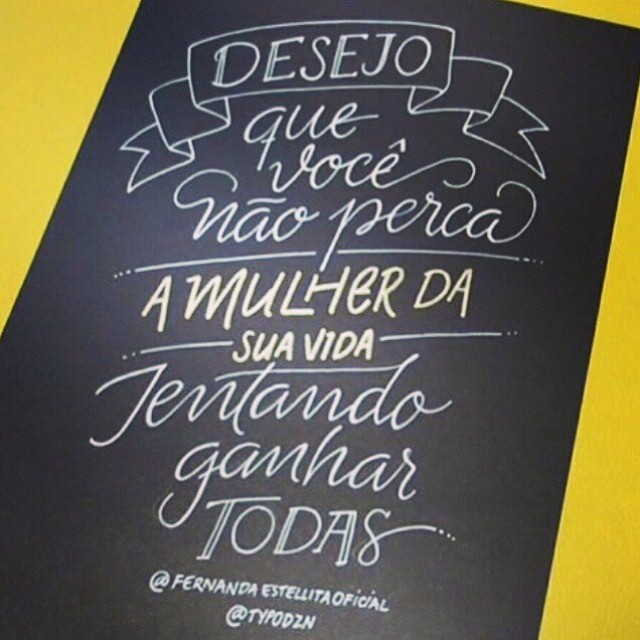 DESEJO
que
você
não perca
A MULHER DA
SUA VIDA
Tentando
ganhar
TODAS
@FERNANDAESTELLITAOFICIAL
@TYPODZN